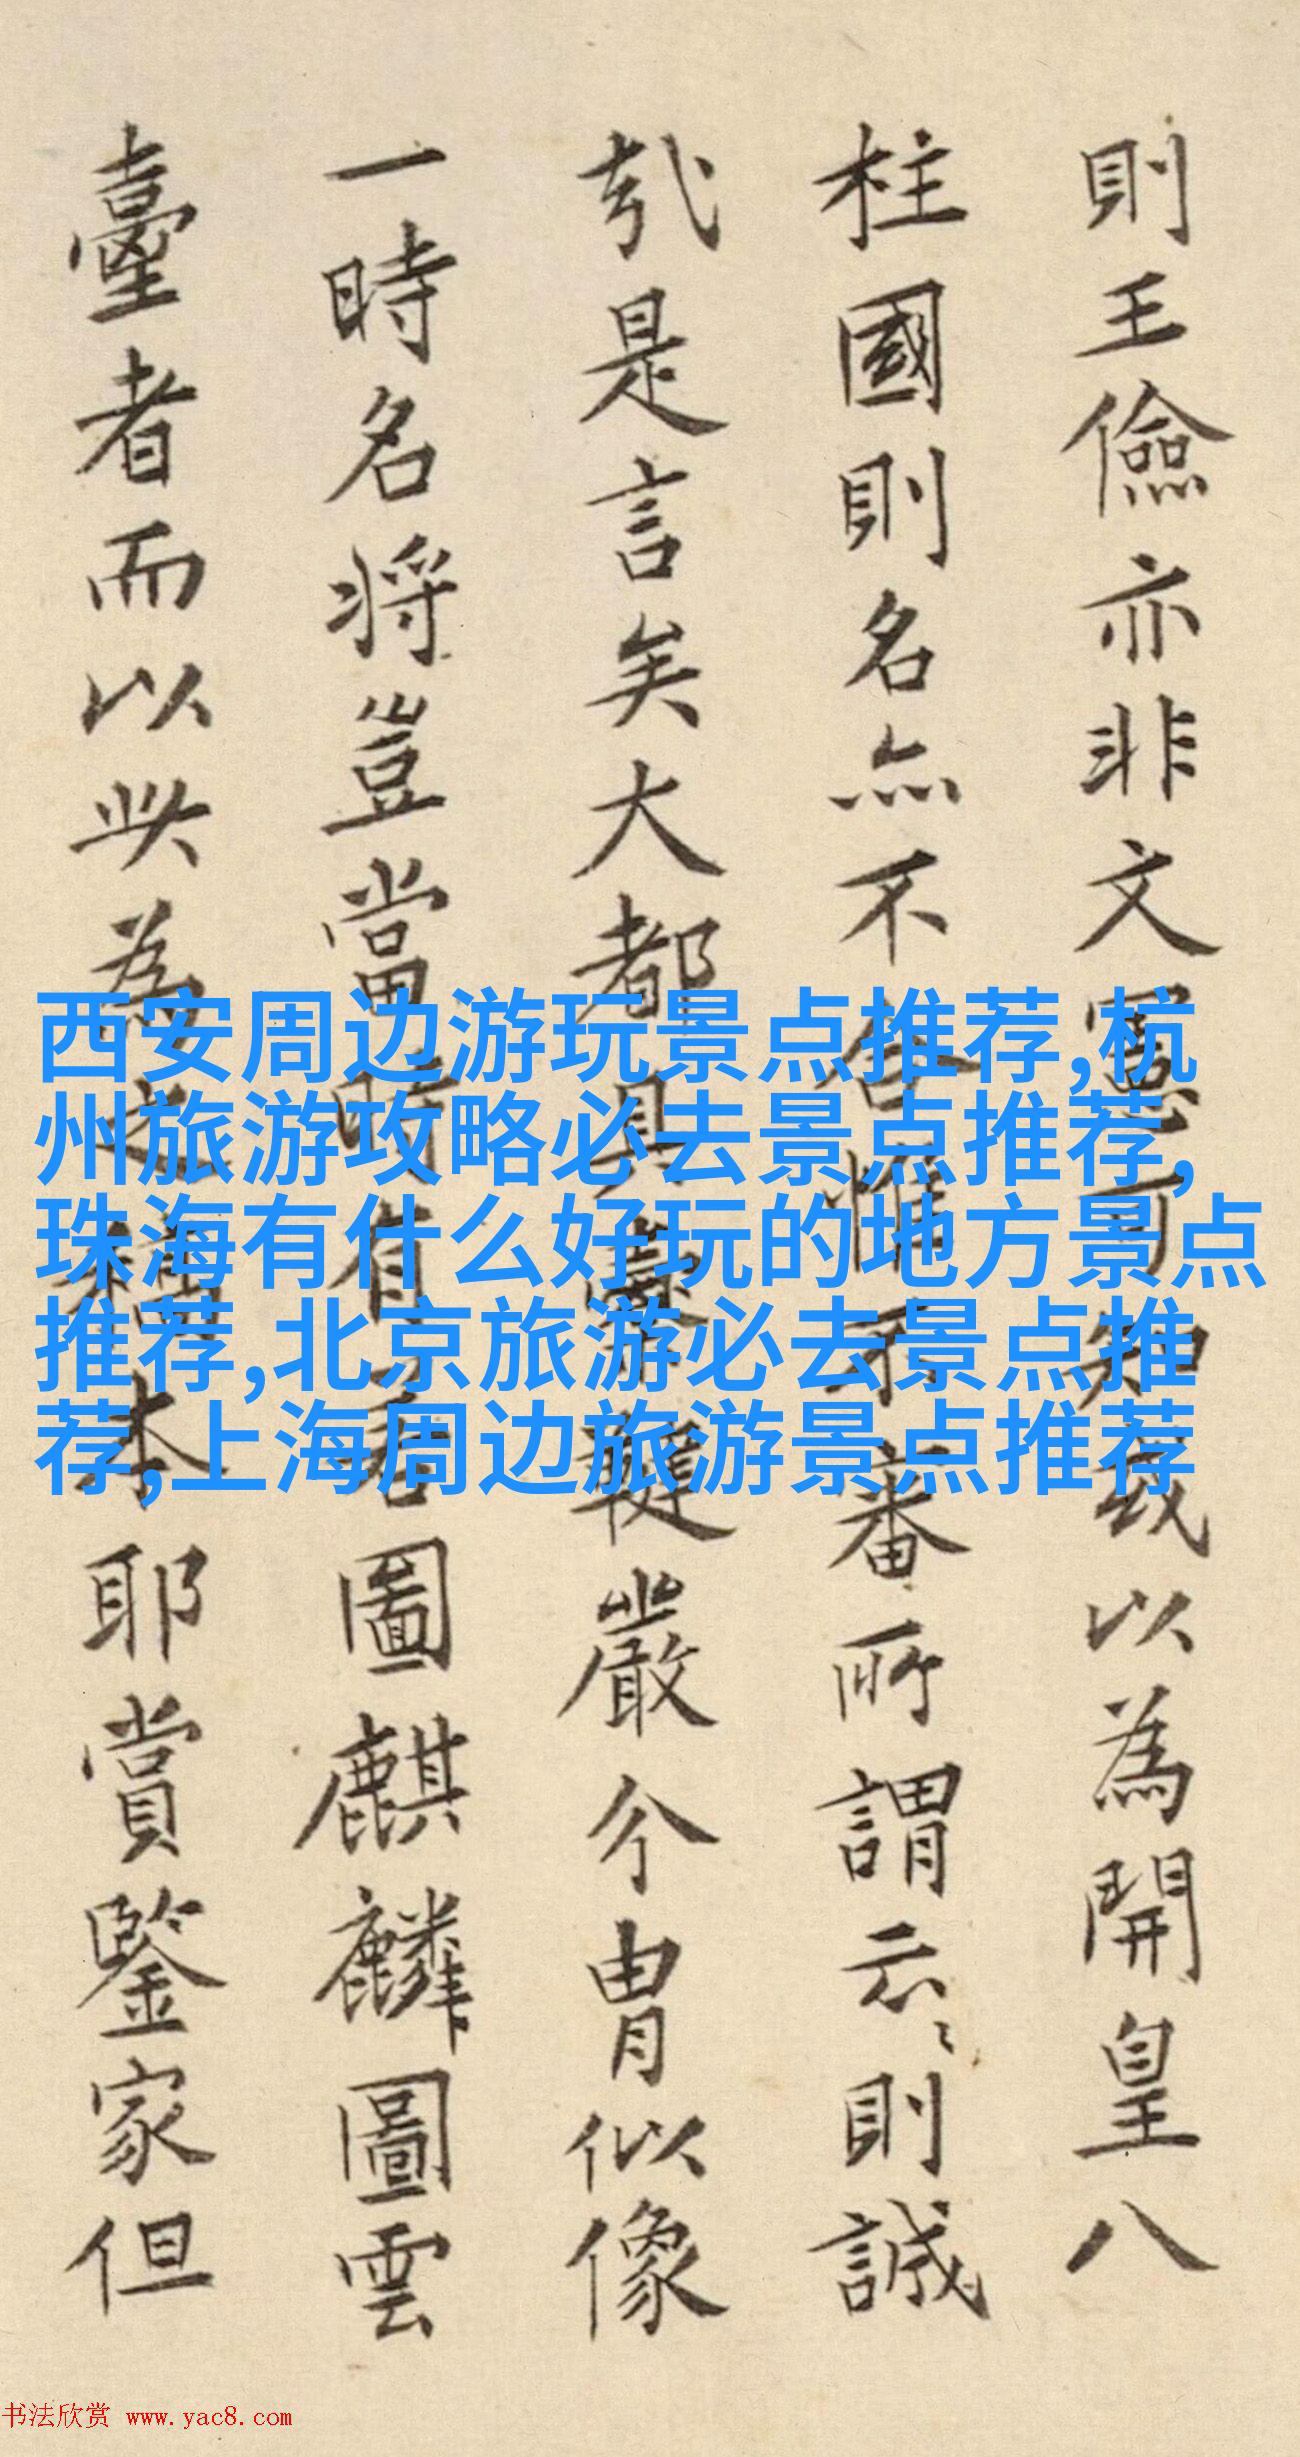 則王儉亦非文憲可知或以為開皇八
柱國則名亦不舍惟不審所謂云云則誠
哉是言矣大都具鼙嚴今冑似像
一時名將豈當時有圖麒麟圖雲
臺者而以此為之稿本耶賞鑒家但
西安周边游玩景点推荐,杭
州旅游攻略必去景点推荐,
珠海有什么好玩的地方景点
推荐,北京旅游必去景点推
荐,上海周边旅游景点推荐
书法欣赏 www.yac8.com